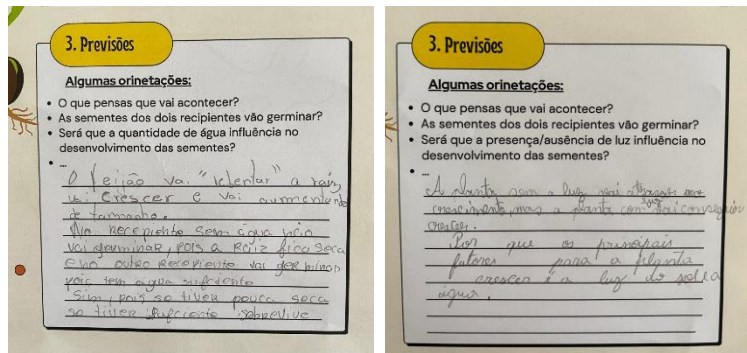 3. Previsões
Algumas orinetações:
• O que pensas que vai acontecer?
• As sementes dos dois recipientes vão germinar?
• Será que a quantidade de água influência no
desenvolvimento das sementes?
• ...
O feijão vai "rebentar" a raiz
vai crescer e vai aumentando
de tamanho.
No recepiente sem água não
vai germinar, pois a Raiz fica seca
e no outro Recepiente vai germinar
pois tem água suficiente
Sim, pois se tiver pouca seca
se tiver suficiente sobrevive
3. Previsões
Algumas orinetações:
• O que pensas que vai acontecer?
• As sementes dos dois recipientes vão germinar?
• Será que a presença/ausência de luz influência no
desenvolvimento das sementes?
• ...
A planta sem a luz vai atrasar
crescimento, mas a planta com luz vai conseguir
crescer.
Por que os principais
fatores para a planta
crescer é a luz do sol e a
água.